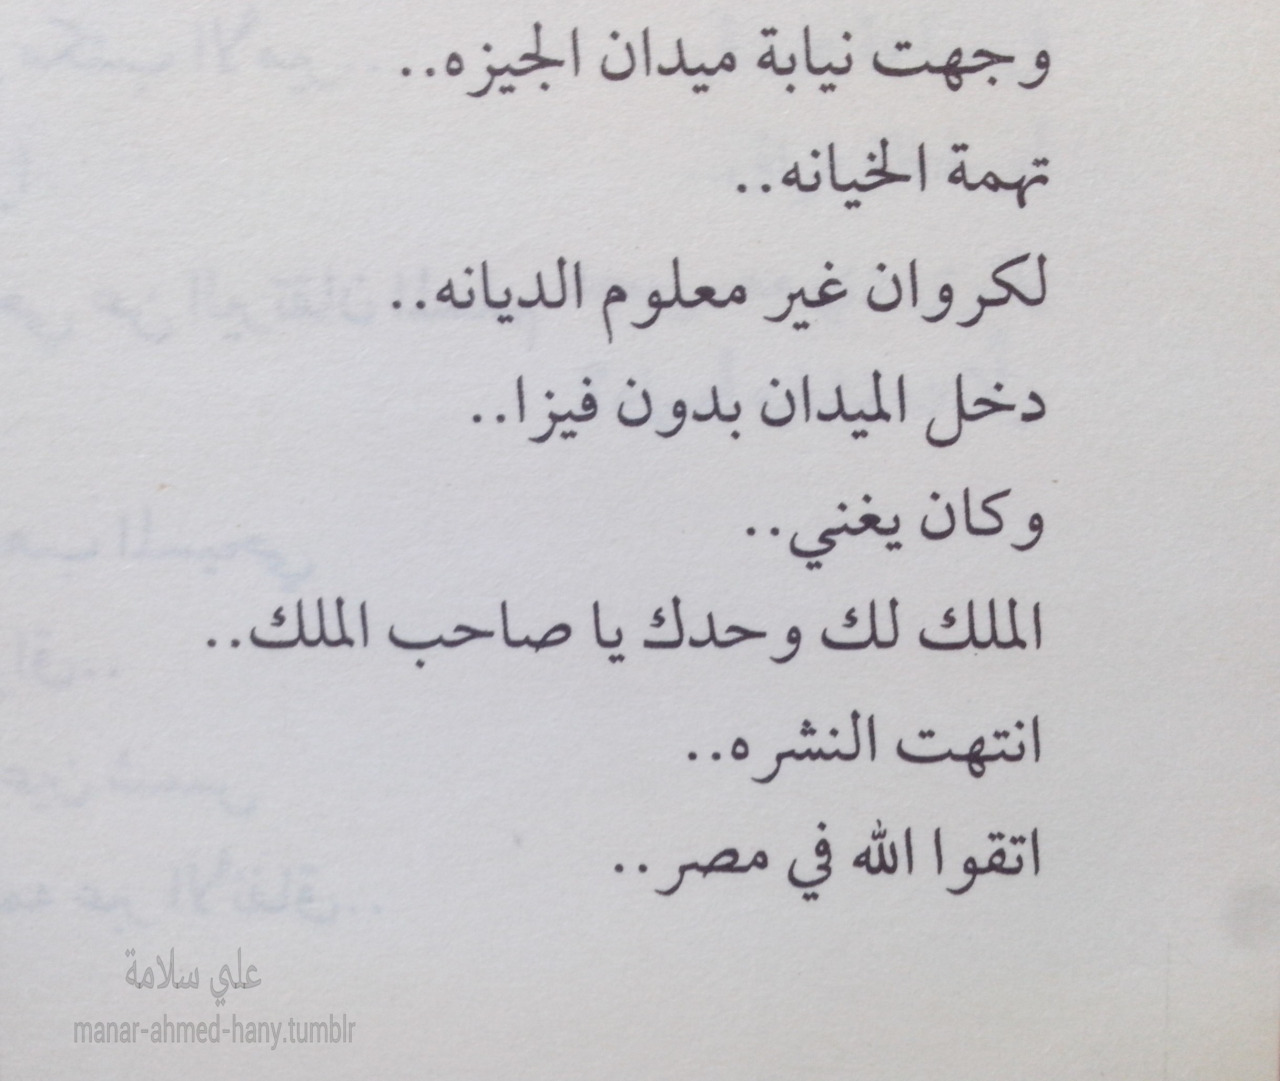 وجهت نيابة ميدان الجيزه..
تهمة الخيانه..
لكروان غير معلوم الديانه..
دخل الميدان بدون فيزا..
وكان يغني..
الملك لك وحدك يا صاحب الملك..
انتهت النشره..
اتقوا الله في مصر..
علي سلامة
manar-ahmed-hany.tumblr